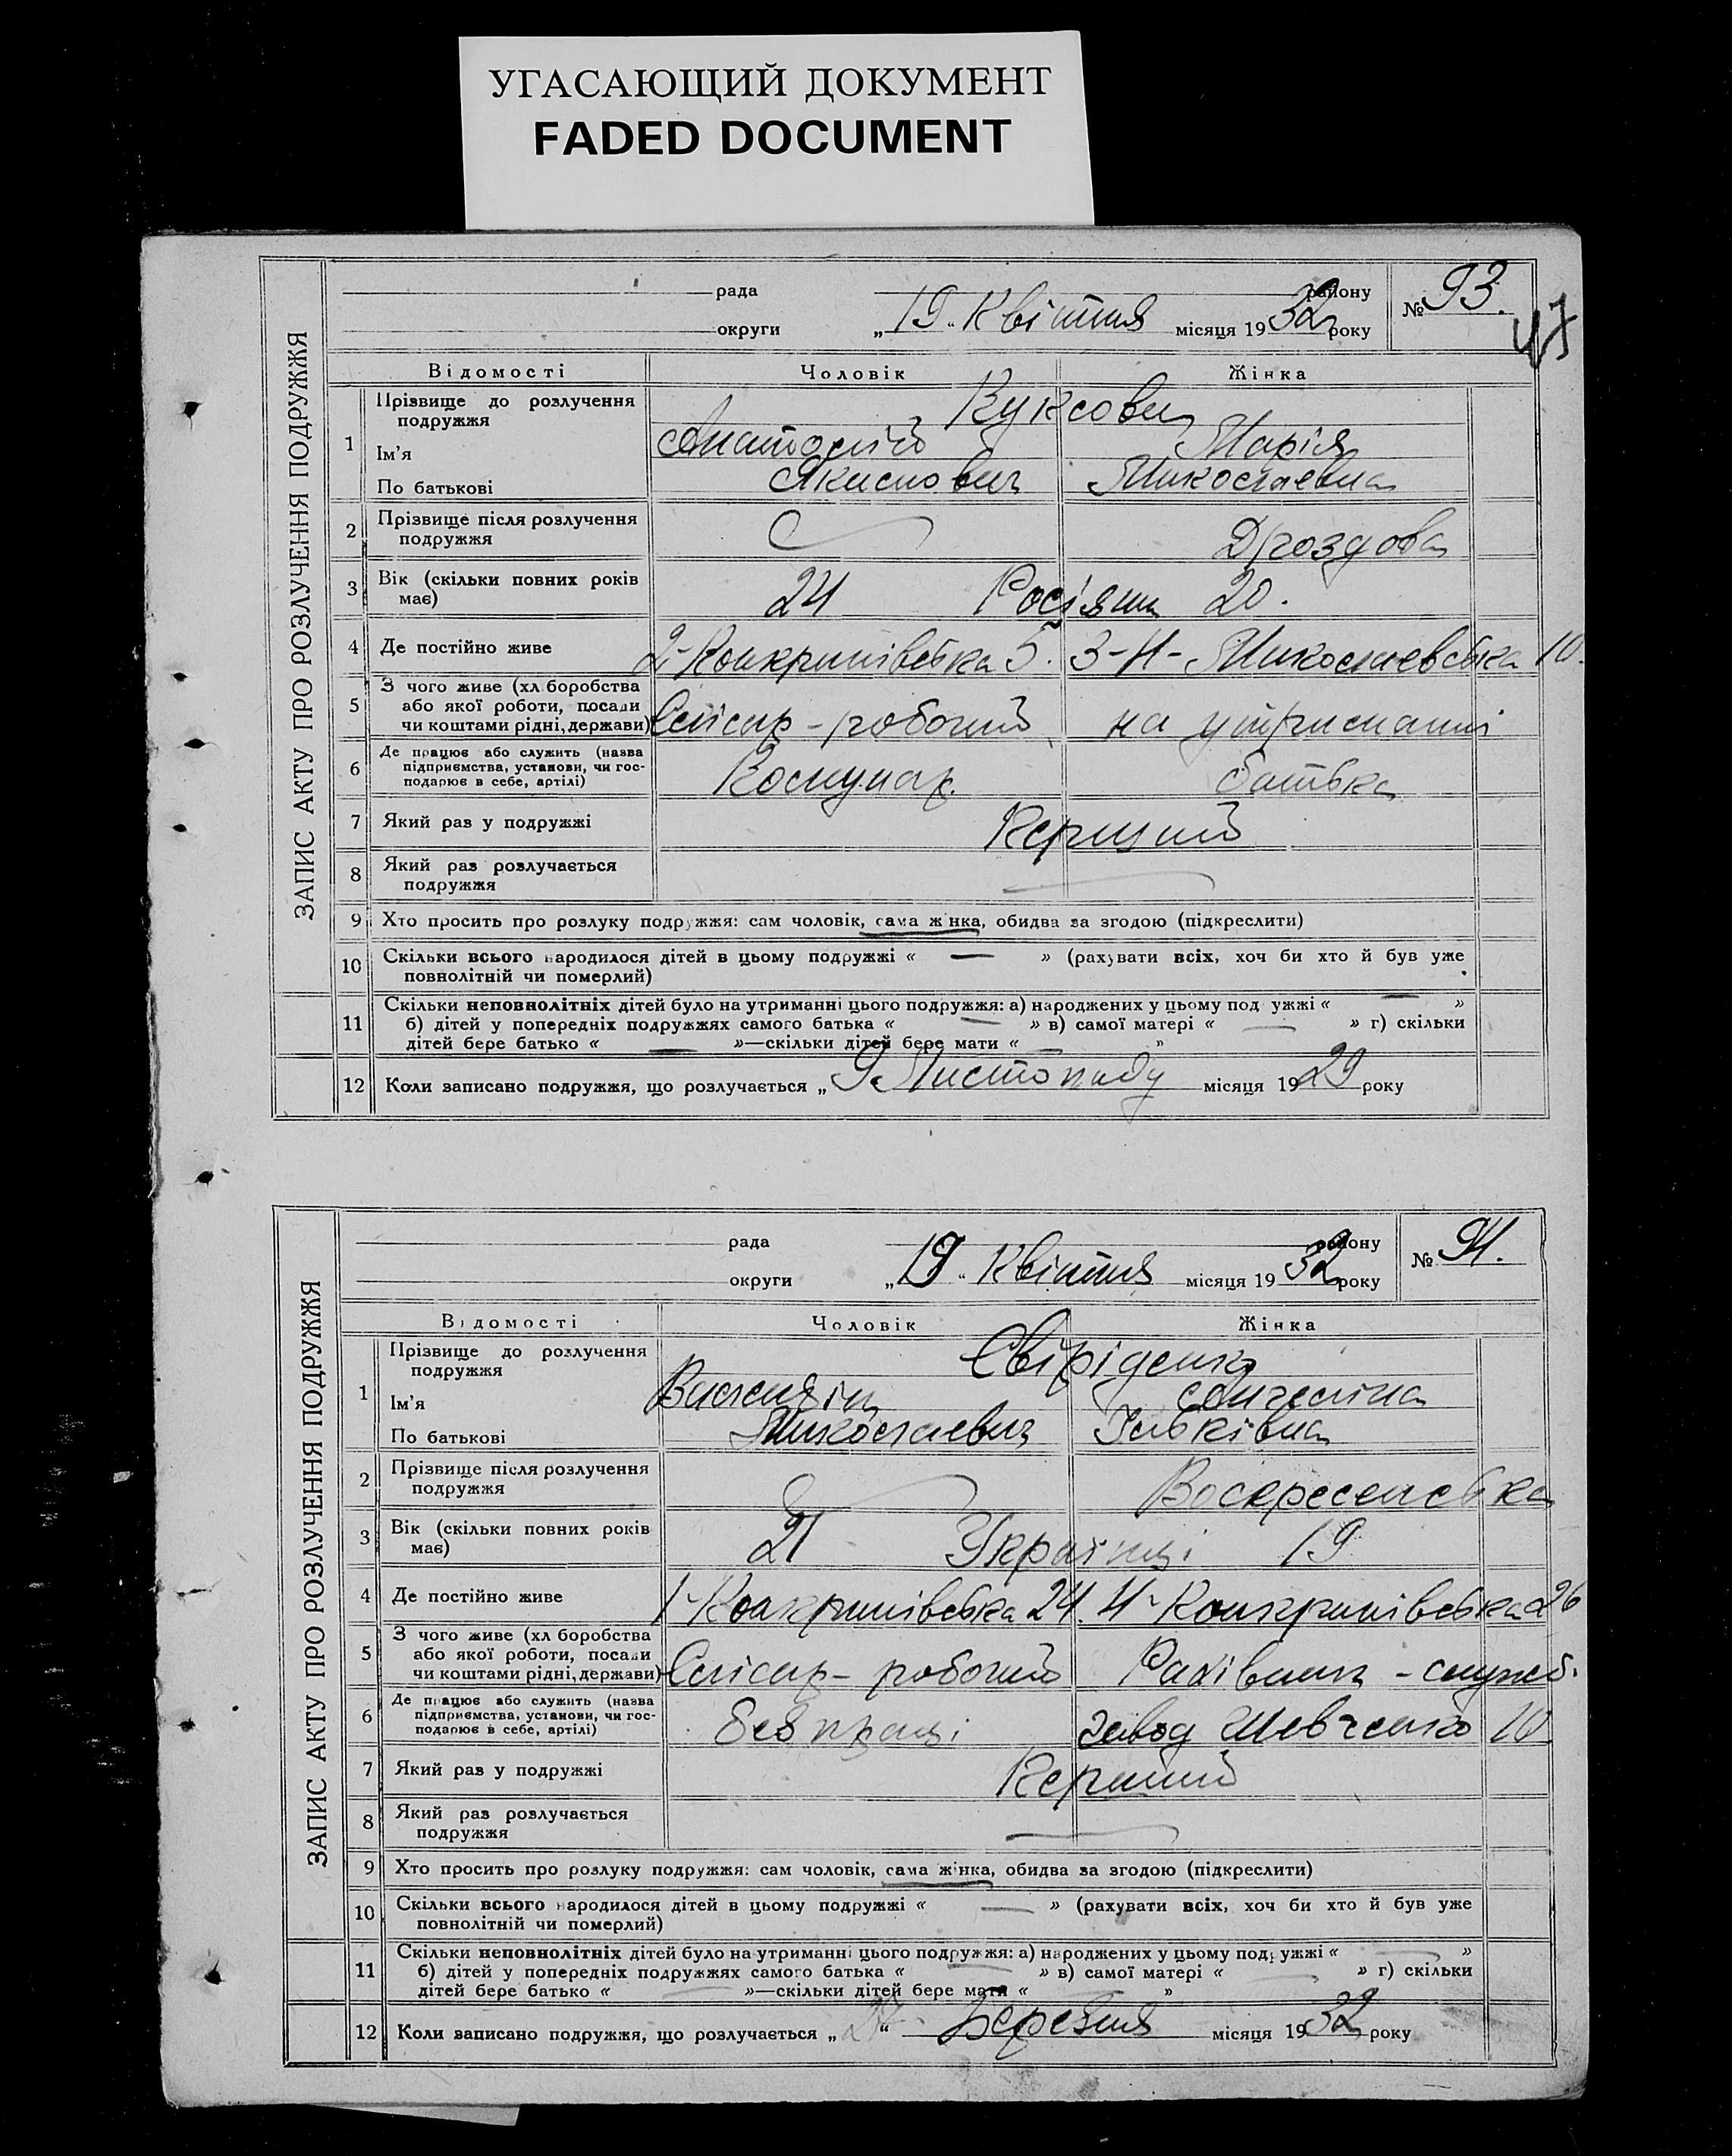 УГАСАЮЩИЙ ДОКУМЕНТ
FADED DOCUMENT
ЗАПИС АКТУ ПРО РОЗЛУЧЕННЯ ПОДРУЖЖЯ
рада району
округи „19“ Квітня місяця 1932 року
№ 93.
47
Відомості Чоловік Жінка
1 Прізвище до розлучення подружжя Куксови
Ім'я Анатолій Марія
По батькові Миколаевна
2 Прізвище після розлучення
подружжя Дроздова
3 Вік (скільки повних років
має) 24 Росіяни 20.
4 Де постійно живе 5. 3-Н-Миколаевська 10.
5 З чого живе (хліборобства
або якої роботи, посади
чи коштами рідні, держави) Слісар-робочий на утриманні
6 Де працює або служить (назва
підприємства, установи, чи гос-
подарює в себе, артілі) Комунар. батька
7 Який раз у подружжі Перший
8 Який раз розлучається
подружжя
9 Хто просить про розлуку подружжя: сам чоловік, сама жінка, обидва за згодою (підкреслити)
10 Скільки всього народилося дітей в цьому подружжі « — » (рахувати всіх, хоч би хто й був уже
повнолітній чи померлий)
11 Скільки неповнолітніх дітей було на утриманні цього подружжя: а) народжених у цьому подружжі « — »
б) дітей у попередніх подружжях самого батька « — » в) самої матері « — » г) скільки
дітей бере батько « — »—скільки дітей бере мати « — »
12 Коли записано подружжя, що розлучається „9 Листопаду місяця 1929 року
ЗАПИС АКТУ ПРО РОЗЛУЧЕННЯ ПОДРУЖЖЯ
рада району
округи „19“ Квітня місяця 1932 року
№ 94.
Відомості Чоловік Жінка
1 Прізвище до розлучення
подружжя Свіріденко
Ім'я Ангеліна
По батькові Миколаевич
2 Прізвище після розлучення
подружжя Воскресенська
3 Вік (скільки повних років
має) 21 Українці 19
4 Де постійно живе 24. 26
5 З чого живе (хліборобства
або якої роботи, посади
чи коштами рідні, держави) Слісар- робочий Рахівник - служб.
6 Де працює або служить (назва
підприємства, установи, чи гос-
подарює в себе, артілі) без праці завод Шевченко 10
7 Який раз у подружжі Перший
8 Який раз розлучається
подружжя
9 Хто просить про розлуку подружжя: сам чоловік, сама жінка, обидва за згодою (підкреслити)
10 Скільки всього народилося дітей в цьому подружжі « — » (рахувати всіх, хоч би хто й був уже
повнолітній чи померлий)
11 Скільки неповнолітніх дітей було на утриманні цього подружжя: а) народжених у цьому подружжі « — »
б) дітей у попередніх подружжях самого батька « — » в) самої матері « — » г) скільки
дітей бере батько « — »—скільки дітей бере мати « »
12 Коли записано подружжя, що розлучається „27“ Березня місяця 1932 року